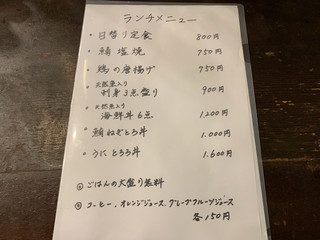 ランチメニュー
・日替り定食 800円
・鯖塩焼 750円
・鶏の唐揚げ 750円
天然魚入り
・刺身3点盛り 900円
天然魚入り
・海鮮丼6点 1,200円
・鮪ねぎとろ丼 1,000円
・うにとろろ丼 1,600円
◎ごはんの大盛り無料
◎コーヒー、オレンジジュース、グレープフルーツジュース
各150円